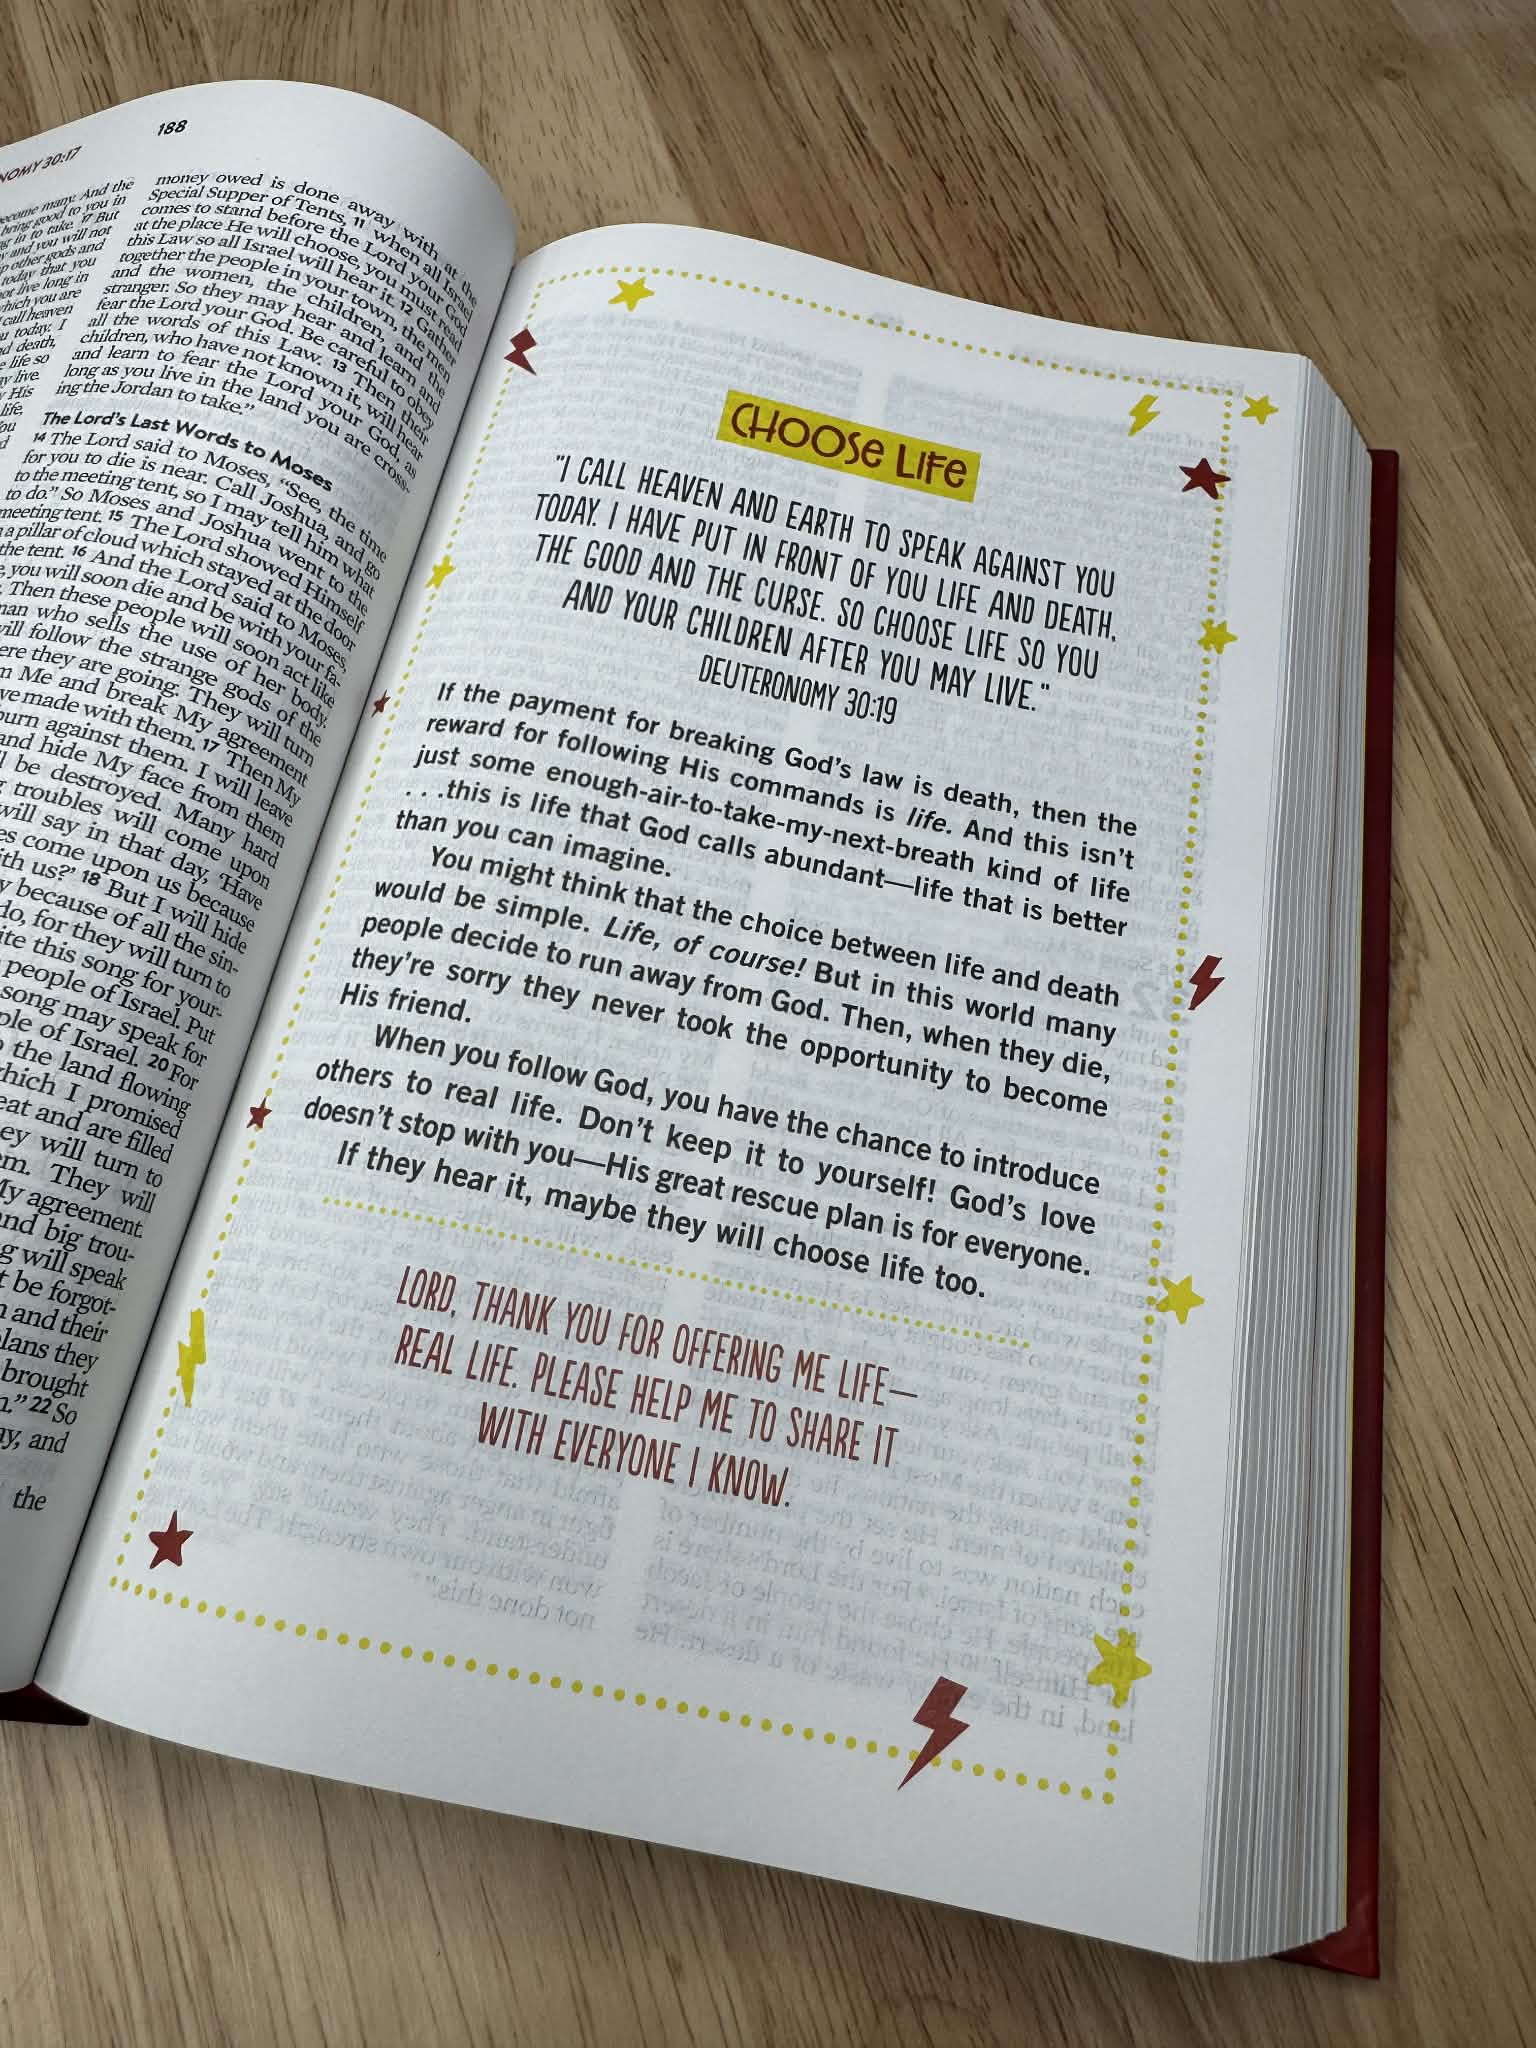 188
NOMY 30:17
become many. And the
bring good to you in
ng in to take. 17 But
y and you will not
p other gods and
today that you
not live long in
which you are
call heaven
u today. I
nd death,
e life so
ay live.
y His
life,
You
d
money owed is done away with at the
Special Supper of Tents, 11 when all Israel
comes to stand before the Lord your God
at the place He will choose, you must read
this Law so all Israel will hear it. 12 Gather
together the people in your town, the men
and the women, the children, and the
stranger. So they may hear and learn and
fear the Lord your God. Be careful to obey
all the words of this Law. 13 Then their
children, who have not known it, will hear
and learn to fear the Lord your God, as
long as you live in the land you are cross-
ing the Jordan to take."
The Lord's Last Words to Moses
14 The Lord said to Moses, "See, the time
for you to die is near. Call Joshua, and go
to the meeting tent, so I may tell him what
to do." So Moses and Joshua went to the
meeting tent. 15 The Lord showed Himself
a pillar of cloud which stayed at the door
the tent. 16 And the Lord said to Moses,
e, you will soon die and be with your fa-
. Then these people will soon act like
man who sells the use of her body.
will follow the strange gods of the
ere they are going. They will turn
m Me and break My agreement
ve made with them. 17 Then My
burn against them. I will leave
and hide My face from them
l be destroyed. Many hard
g troubles will come upon
will say in that day, 'Have
es come upon us because
ith us?' 18 But I will hide
y because of all the sin-
do, for they will turn to
ite this song for your-
people of Israel. Put
song may speak for
ple of Israel. 20 For
o the land flowing
which I promised
eat and are filled
ey will turn to
em. They will
My agreement.
and big trou-
g will speak
t be forgot-
n and their
plans they
brought
n." 22 So
ay, and
the
CHOOSE LIFE
"I CALL HEAVEN AND EARTH TO SPEAK AGAINST YOU
TODAY. I HAVE PUT IN FRONT OF YOU LIFE AND DEATH,
THE GOOD AND THE CURSE. SO CHOOSE LIFE SO YOU
AND YOUR CHILDREN AFTER YOU MAY LIVE."
DEUTERONOMY 30:19
If the payment for breaking God's law is death, then the
reward for following His commands is life. And this isn't
just some enough-air-to-take-my-next-breath kind of life
. . .this is life that God calls abundant—life that is better
than you can imagine.
You might think that the choice between life and death
would be simple. Life, of course! But in this world many
people decide to run away from God. Then, when they die,
they're sorry they never took the opportunity to become
His friend.
When you follow God, you have the chance to introduce
others to real life. Don't keep it to yourself! God's love
doesn't stop with you—His great rescue plan is for everyone.
If they hear it, maybe they will choose life too.
LORD, THANK YOU FOR OFFERING ME LIFE—
REAL LIFE. PLEASE HELP ME TO SHARE IT
WITH EVERYONE I KNOW.